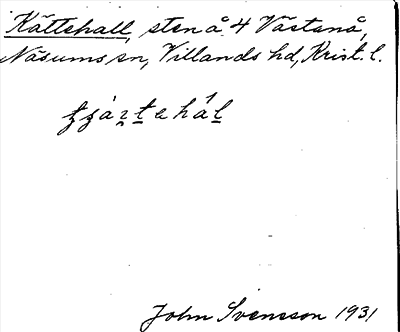 Kättehall, sten å 4 Västanå,
Näsums sn, Villands hd, Krist. l.
John Svensson 1931